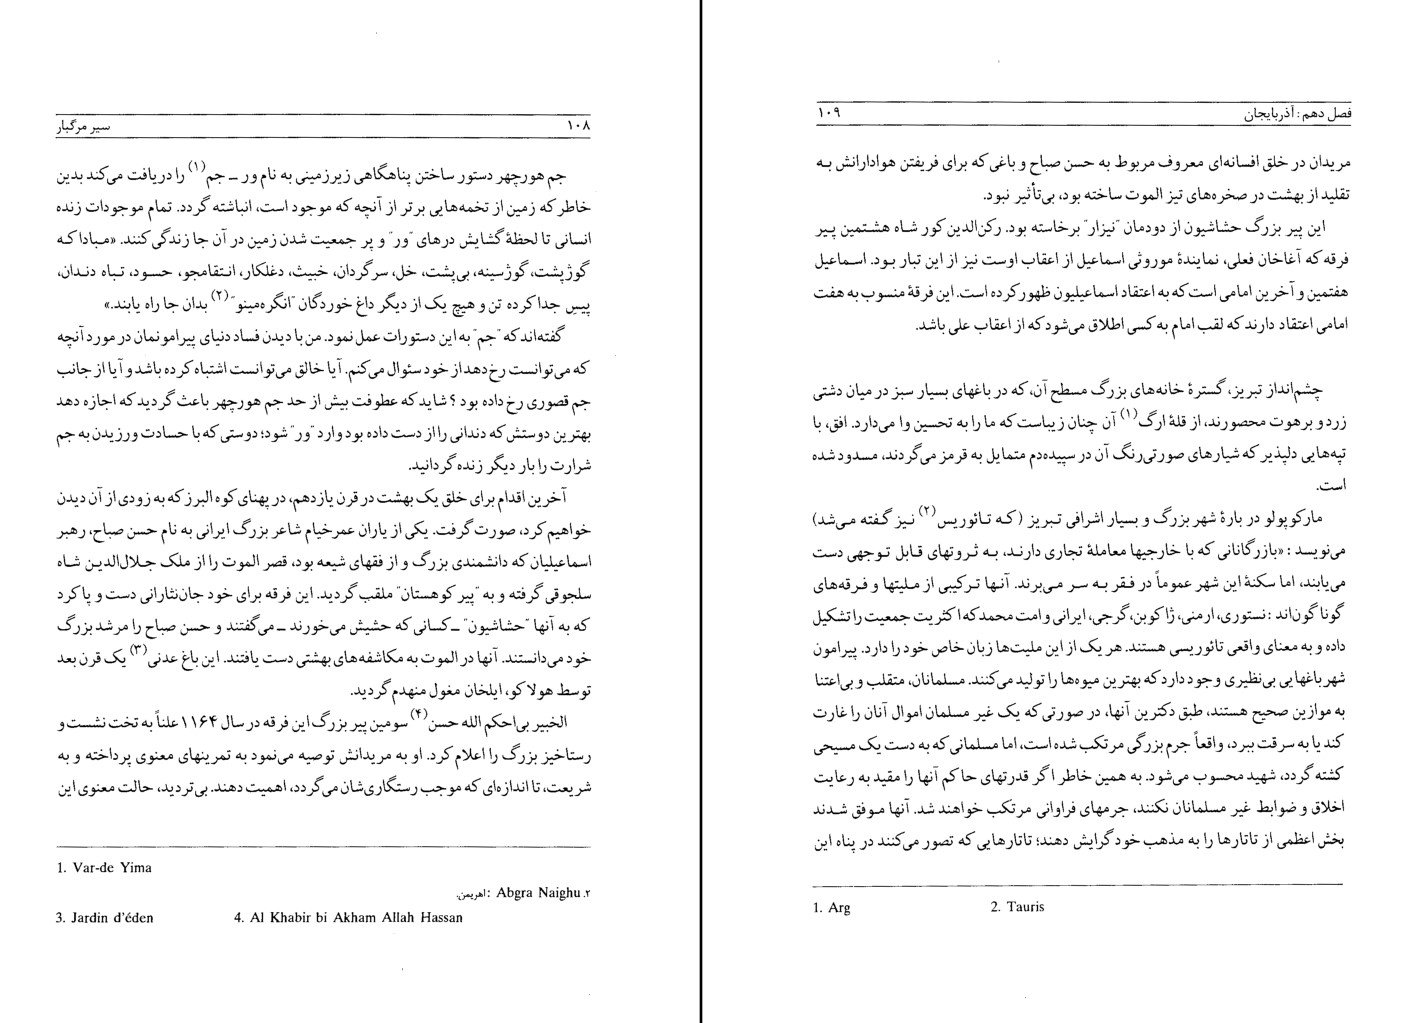 ۱۰۸ سیر مرگبار
جم هورچهر دستور ساختن پناهگاهی زیرزمینی به نام ور ــ جم(۱) را دریافت می‌کند بدین
خاطر که زمین از تخمه‌هایی برتر از آنچه که موجود است، انباشته گردد. تمام موجودات زنده
انسانی تا لحظهٔ گشایش درهای "ور" و پر جمعیت شدن زمین در آن جا زندگی کنند. «مبادا که
گوژپشت، گوژسینه، بی‌پشت، خل، سرگردان، خبیث، دغلکار، انتقامجو، حسود، تباه دندان،
پیسِ جدا کرده تن و هیچ یک از دیگر داغ خوردگان "انگره‌مینو"(۲) بدان جا راه یابند.»
گفته‌اند که "جم" به این دستورات عمل نمود. من با دیدن فساد دنیای پیرامونمان در مورد آنچه
که می‌توانست رخ دهد از خود سئوال می‌کنم. آیا خالق می‌توانست اشتباه کرده باشد و آیا از جانب
جم قصوری رخ داده بود؟ شاید که عطوفت بیش از حد جم هورچهر باعث گردید که اجازه دهد
بهترین دوستش که دندانی را از دست داده بود وارد "ور" شود؛ دوستی که با حسادت ورزیدن به جم
شرارت را بار دیگر زنده گردانید.
آخرین اقدام برای خلق یک بهشت در قرن یازدهم، در پهنای کوه البرز که به زودی از آن دیدن
خواهیم کرد، صورت گرفت. یکی از یاران عمرخیام شاعر بزرگ ایرانی به نام حسن صباح، رهبر
اسماعیلیان که دانشمندی بزرگ و از فقهای شیعه بود، قصر الموت را از ملک جلال‌الدین شاه
سلجوقی گرفته و به "پیر کوهستان" ملقب گردید. این فرقه برای خود جان‌نثارانی دست و پا کرد
که به آنها "حشاشیون" ــ کسانی که حشیش می‌خورند ــ می‌گفتند و حسن صباح را مرشد بزرگ
خود می‌دانستند. آنها در الموت به مکاشفه‌های بهشتی دست یافتند. این باغ عدنی(۳) یک قرن بعد
توسط هولاکو، ایلخان مغول منهدم گردید.
الخبیر بی‌احکم الله حسن(۴) سومین پیر بزرگ این فرقه در سال ۱۱۶۴ علناً به تخت نشست و
رستاخیز بزرگ را اعلام کرد. او به مریدانش توصیه می‌نمود به تمرینهای معنوی پرداخته و به
شریعت، تا اندازه‌ای که موجب رستگاری‌شان می‌گردد، اهمیت دهند. بی‌تردید، حالت معنوی این
1. Var-de Yima
۲. Abgra Naighu : اهریمن.
3. Jardin d'éden 4. Al Khabir bi Akham Allah Hassan
فصل دهم : آذربایجان ۱۰۹
مریدان در خلق افسانه‌ای معروف مربوط به حسن صباح و باغی که برای فریفتن هوادارانش به
تقلید از بهشت در صخره‌های تیز الموت ساخته بود، بی‌تأثیر نبود.
این پیر بزرگ حشاشیون از دودمان "نیزار" برخاسته بود. رکن‌الدین کور شاه هشتمین پیر
فرقه که آغاخان فعلی، نمایندهٔ موروثی اسماعیل از اعقاب اوست نیز از این تبار بود. اسماعیل
هفتمین و آخرین امامی است که به اعتقاد اسماعیلیون ظهور کرده است. این فرقهٔ منسوب به هفت
امامی اعتقاد دارند که لقب امام به کسی اطلاق می‌شود که از اعقاب علی باشد.
چشم‌انداز تبریز، گسترهٔ خانه‌های بزرگ مسطح آن، که در باغهای بسیار سبز در میان دشتی
زرد و برهوت محصورند، از قلهٔ ارگ(۱) آن چنان زیباست که ما را به تحسین وا می‌دارد. افق، با
تپه‌هایی دلپذیر که شیارهای صورتی‌رنگ آن در سپیده‌دم متمایل به قرمز می‌گردند، مسدود شده
است.
مارکوپولو در بارهٔ شهر بزرگ و بسیار اشرافی تبریز (که تائوریس(۲) نیز گفته می‌شد)
می‌نویسد : «بازرگانانی که با خارجیها معاملهٔ تجاری دارند، به ثروتهای قابل توجهی دست
می‌یابند، اما سکنهٔ این شهر عموماً در فقر به سر می‌برند. آنها ترکیبی از ملیتها و فرقه‌های
گوناگون‌اند : نستوری، ارمنی، ژاکوبن، گرجی، ایرانی و امت محمد که اکثریت جمعیت را تشکیل
داده و به معنای واقعی تائوریسی هستند. هر یک از این ملیت‌ها زبان خاص خود را دارد. پیرامون
شهر باغهایی بی‌نظیری وجود دارد که بهترین میوه‌ها را تولید می‌کنند. مسلمانان، متقلب و بی‌اعتنا
به موازین صحیح هستند، طبق دکترین آنها، در صورتی که یک غیر مسلمان اموال آنان را غارت
کند یا به سرقت ببرد، واقعاً جرم بزرگی مرتکب شده است، اما مسلمانی که به دست یک مسیحی
کشته گردد، شهید محسوب می‌شود. به همین خاطر اگر قدرتهای حاکم آنها را مقید به رعایت
اخلاق و ضوابط غیر مسلمانان نکنند، جرمهای فراوانی مرتکب خواهند شد. آنها موفق شدند
بخش اعظمی از تاتارها را به مذهب خود گرایش دهند؛ تاتارهایی که تصور می‌کنند در پناه این
1. Arg 2. Tauris